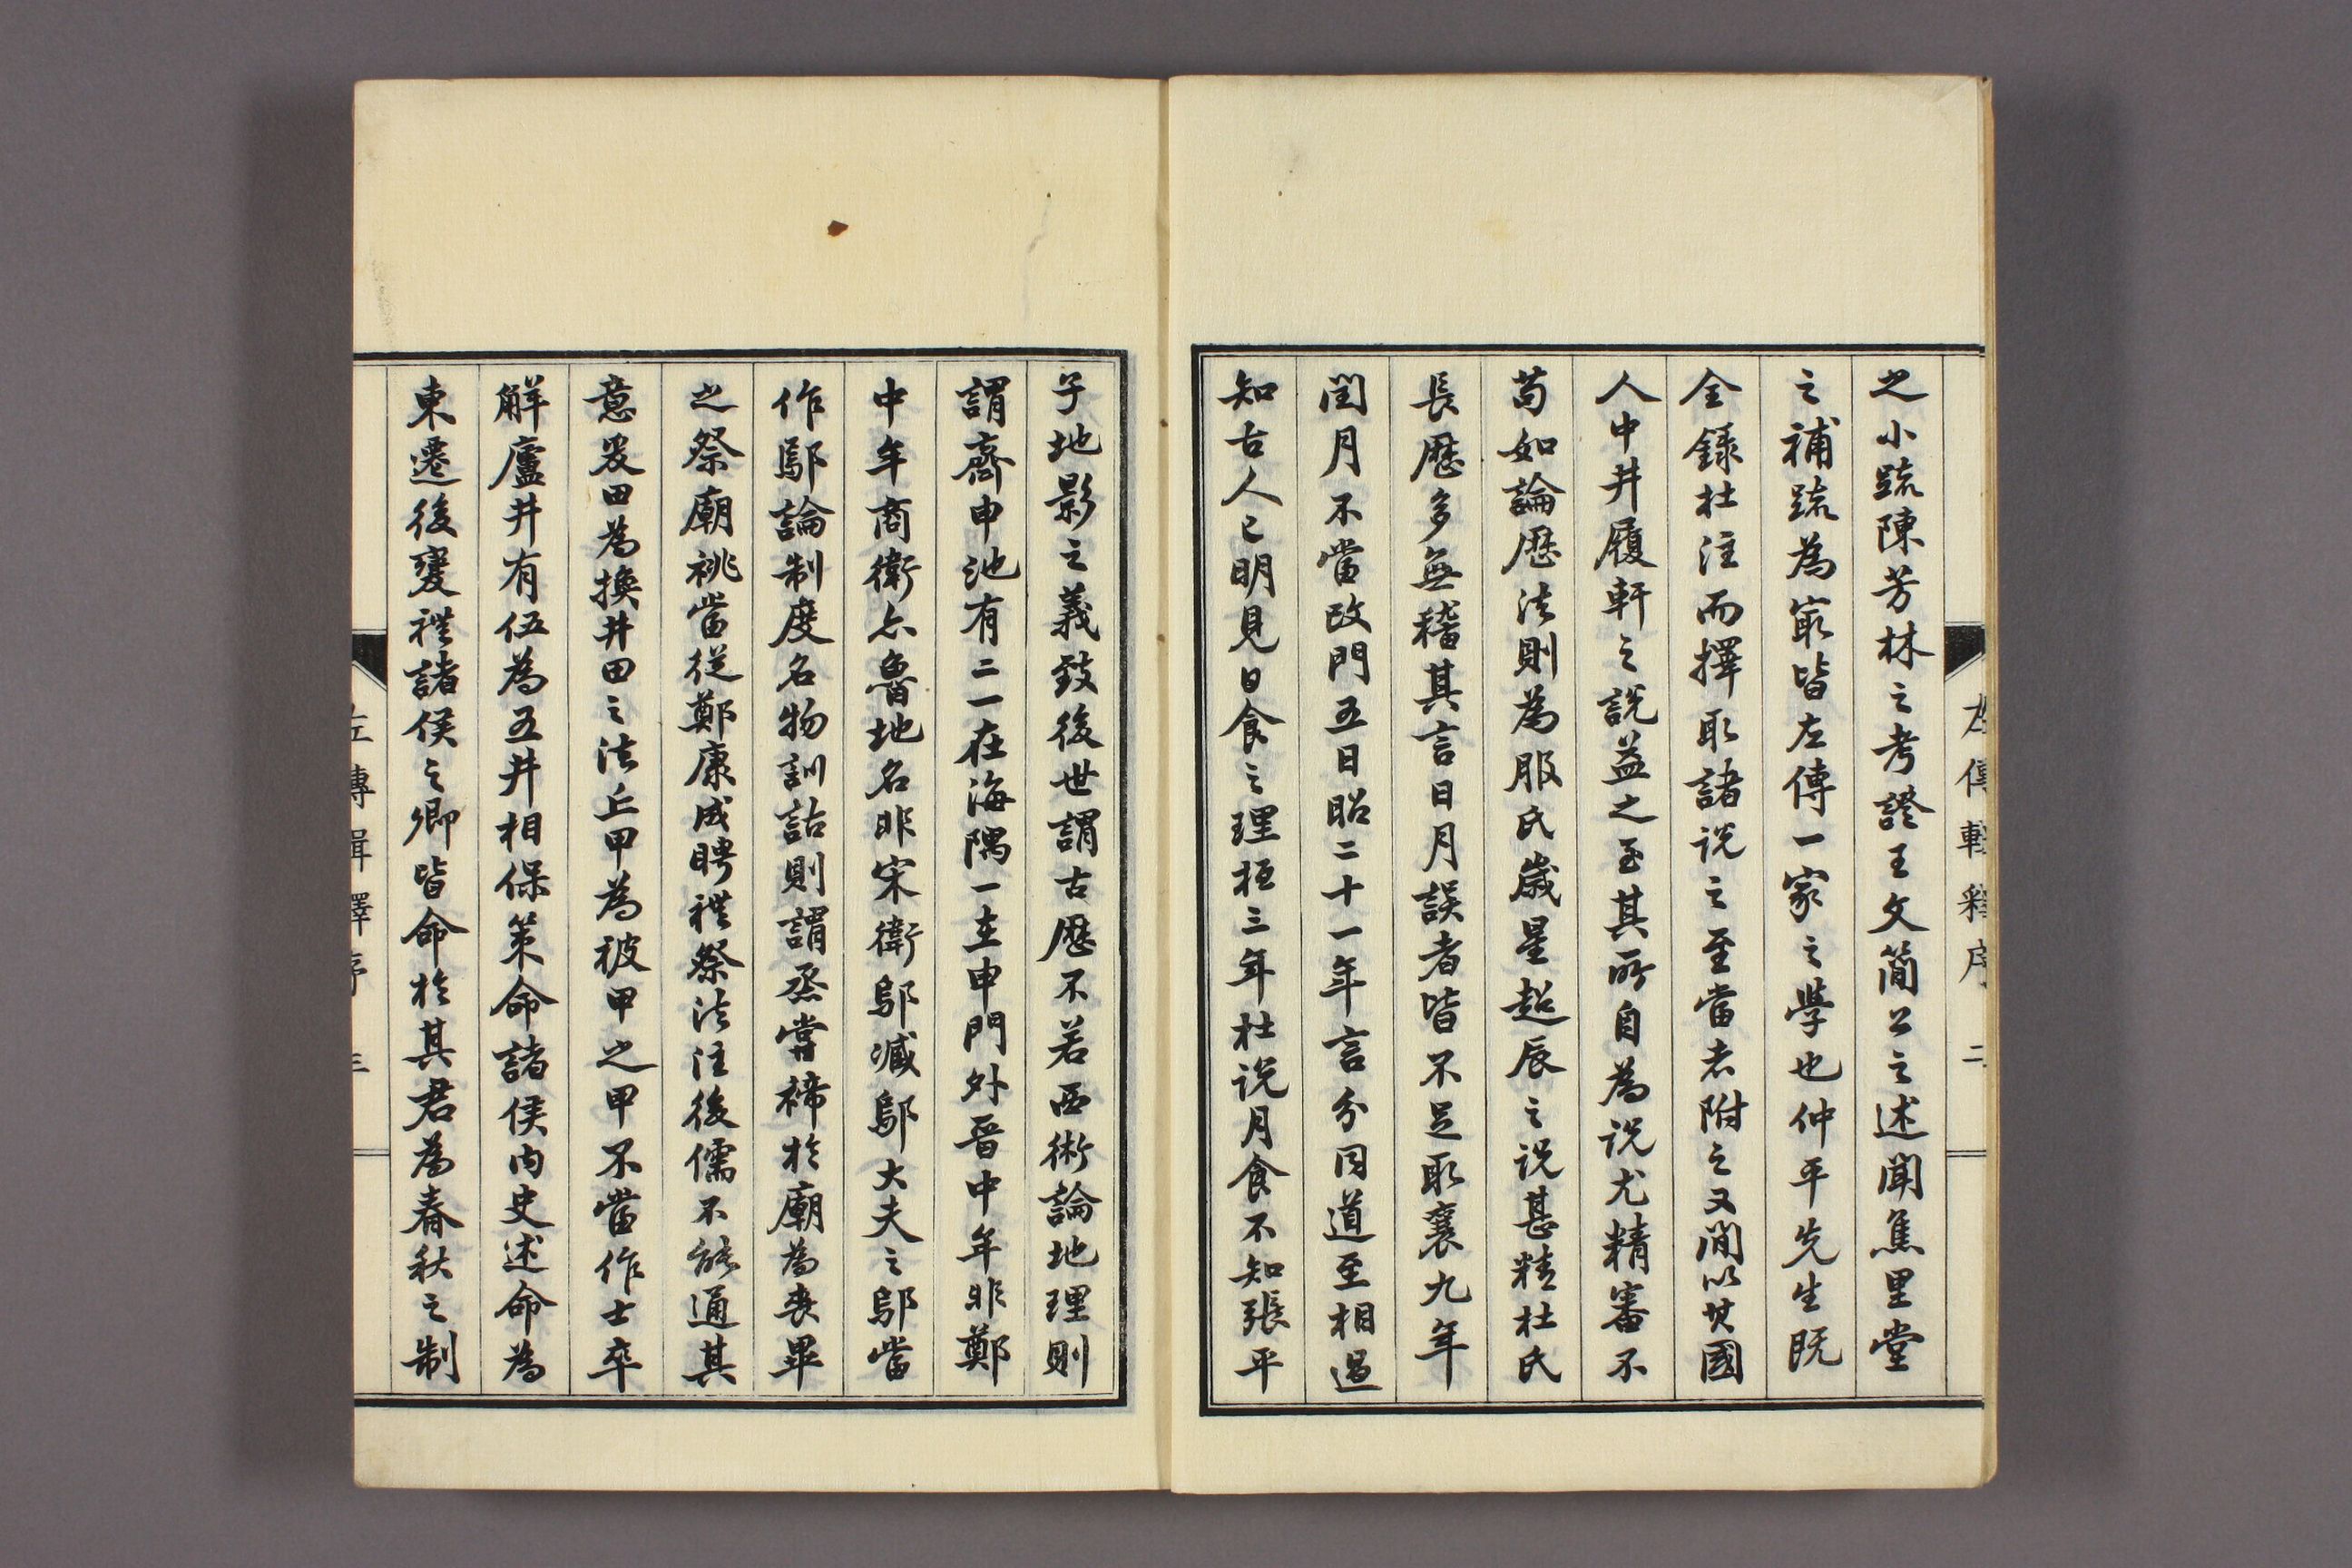 左傳輯釋序 二
之小疏陳芳林之考證王文簡公之述聞焦里堂
之補疏為冣皆左傳一家之學也仲平先生既
全錄杜注而擇取諸说之至當者附之又閒以其國
人中井履軒之說益之至其所自為说尤精審不
苟如論歷法則為服氏歲星超辰之说甚精杜氏
長歷多無稽其言日月誤者皆不足取襄九年
閏月不當改門五日昭二十一年言分同道至相過
知古人已明見日食之理桓三年杜说月食不知張平
子地影之義致後世謂古歷不若西術論地理則
謂齊申池有二一在海隅一在申門外晉中牟非鄭
中牟商衛亦魯地名非宋衛鄔臧鄔大夫之鄔當
作鄥論制度名物訓詁則謂烝嘗禘於廟為喪畢
之祭廟祧當從鄭康成聘禮祭法注後儒不能通其
意爰田為換井田之法丘甲為被甲之甲不當作士卒
解廬井有伍為五井相保策命諸侯內史述命為
東遷後變禮諸侯之卿皆命於其君為春秋之制
左傳輯釋序 三